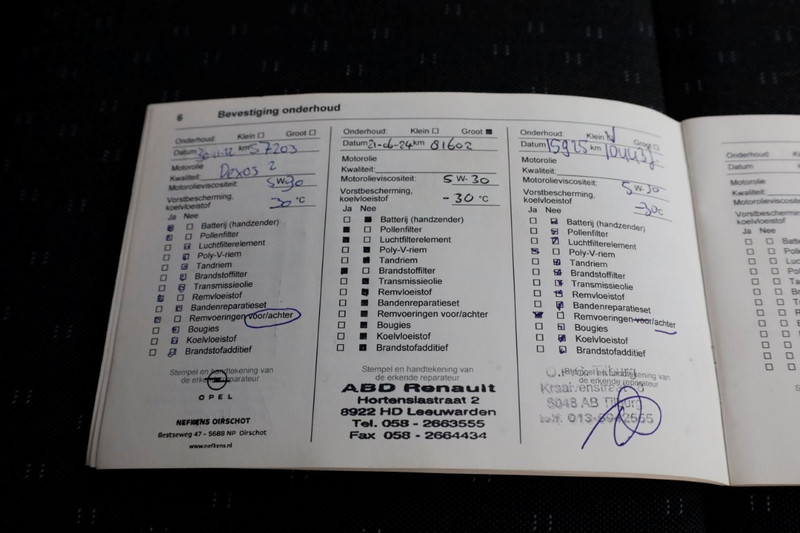 6 Bevestiging onderhoud
Onderhoud: Klein Groot
Datum km 57203
Motorolie
Kwaliteit: Dexos 2
Motorolieviscositeit: 5W-30
Vorstbescherming,
koelvloeistof 30 °C
Ja Nee
Batterij (handzender)
Pollenfilter
Luchtfilterelement
Poly-V-riem
Tandriem
Brandstoffilter
Transmissieolie
Remvloeistof
Bandenreparatieset
Remvoeringen voor/achter
Bougies
Koelvloeistof
Brandstofadditief
Stempel en handtekening van
de erkende reparateur
OPEL
NEFKENS OIRSCHOT
Bestseweg 47 - 5688 NP Oirschot
www.nefkens.nl
Onderhoud: Klein Groot
Datum 21-06-24 km 81602
Motorolie
Kwaliteit:
Motorolieviscositeit: 5W-30
Vorstbescherming,
koelvloeistof -30 °C
Ja Nee
Batterij (handzender)
Pollenfilter
Luchtfilterelement
Poly-V-riem
Tandriem
Brandstoffilter
Transmissieolie
Remvloeistof
Bandenreparatieset
Remvoeringen voor/achter
Bougies
Koelvloeistof
Brandstofadditief
Stempel en handtekening van
de erkende reparateur
ABD Renault
Hortensiastraat 2
8922 HD Leeuwarden
Tel. 058 - 2663555
Fax 058 - 2664434
Onderhoud: Klein Groot
Datum km
Motorolie
Kwaliteit:
Motorolieviscositeit: 5W-30
Vorstbescherming,
koelvloeistof -30c
Ja Nee
Batterij (handzender)
Pollenfilter
Luchtfilterelement
Poly-V-riem
Tandriem
Brandstoffilter
Transmissieolie
Remvloeistof
Bandenreparatieset
Remvoeringen voor/achter
Bougies
Koelvloeistof
Brandstofadditief
Stempel en handtekening van
de erkende reparateur
5048 AB Tilburg
Onderhoud: Klein
Datum
Motorolie
Kwaliteit:
Motorolieviscositeit:
Vorstbescherming,
koelvloeistof
Ja Nee